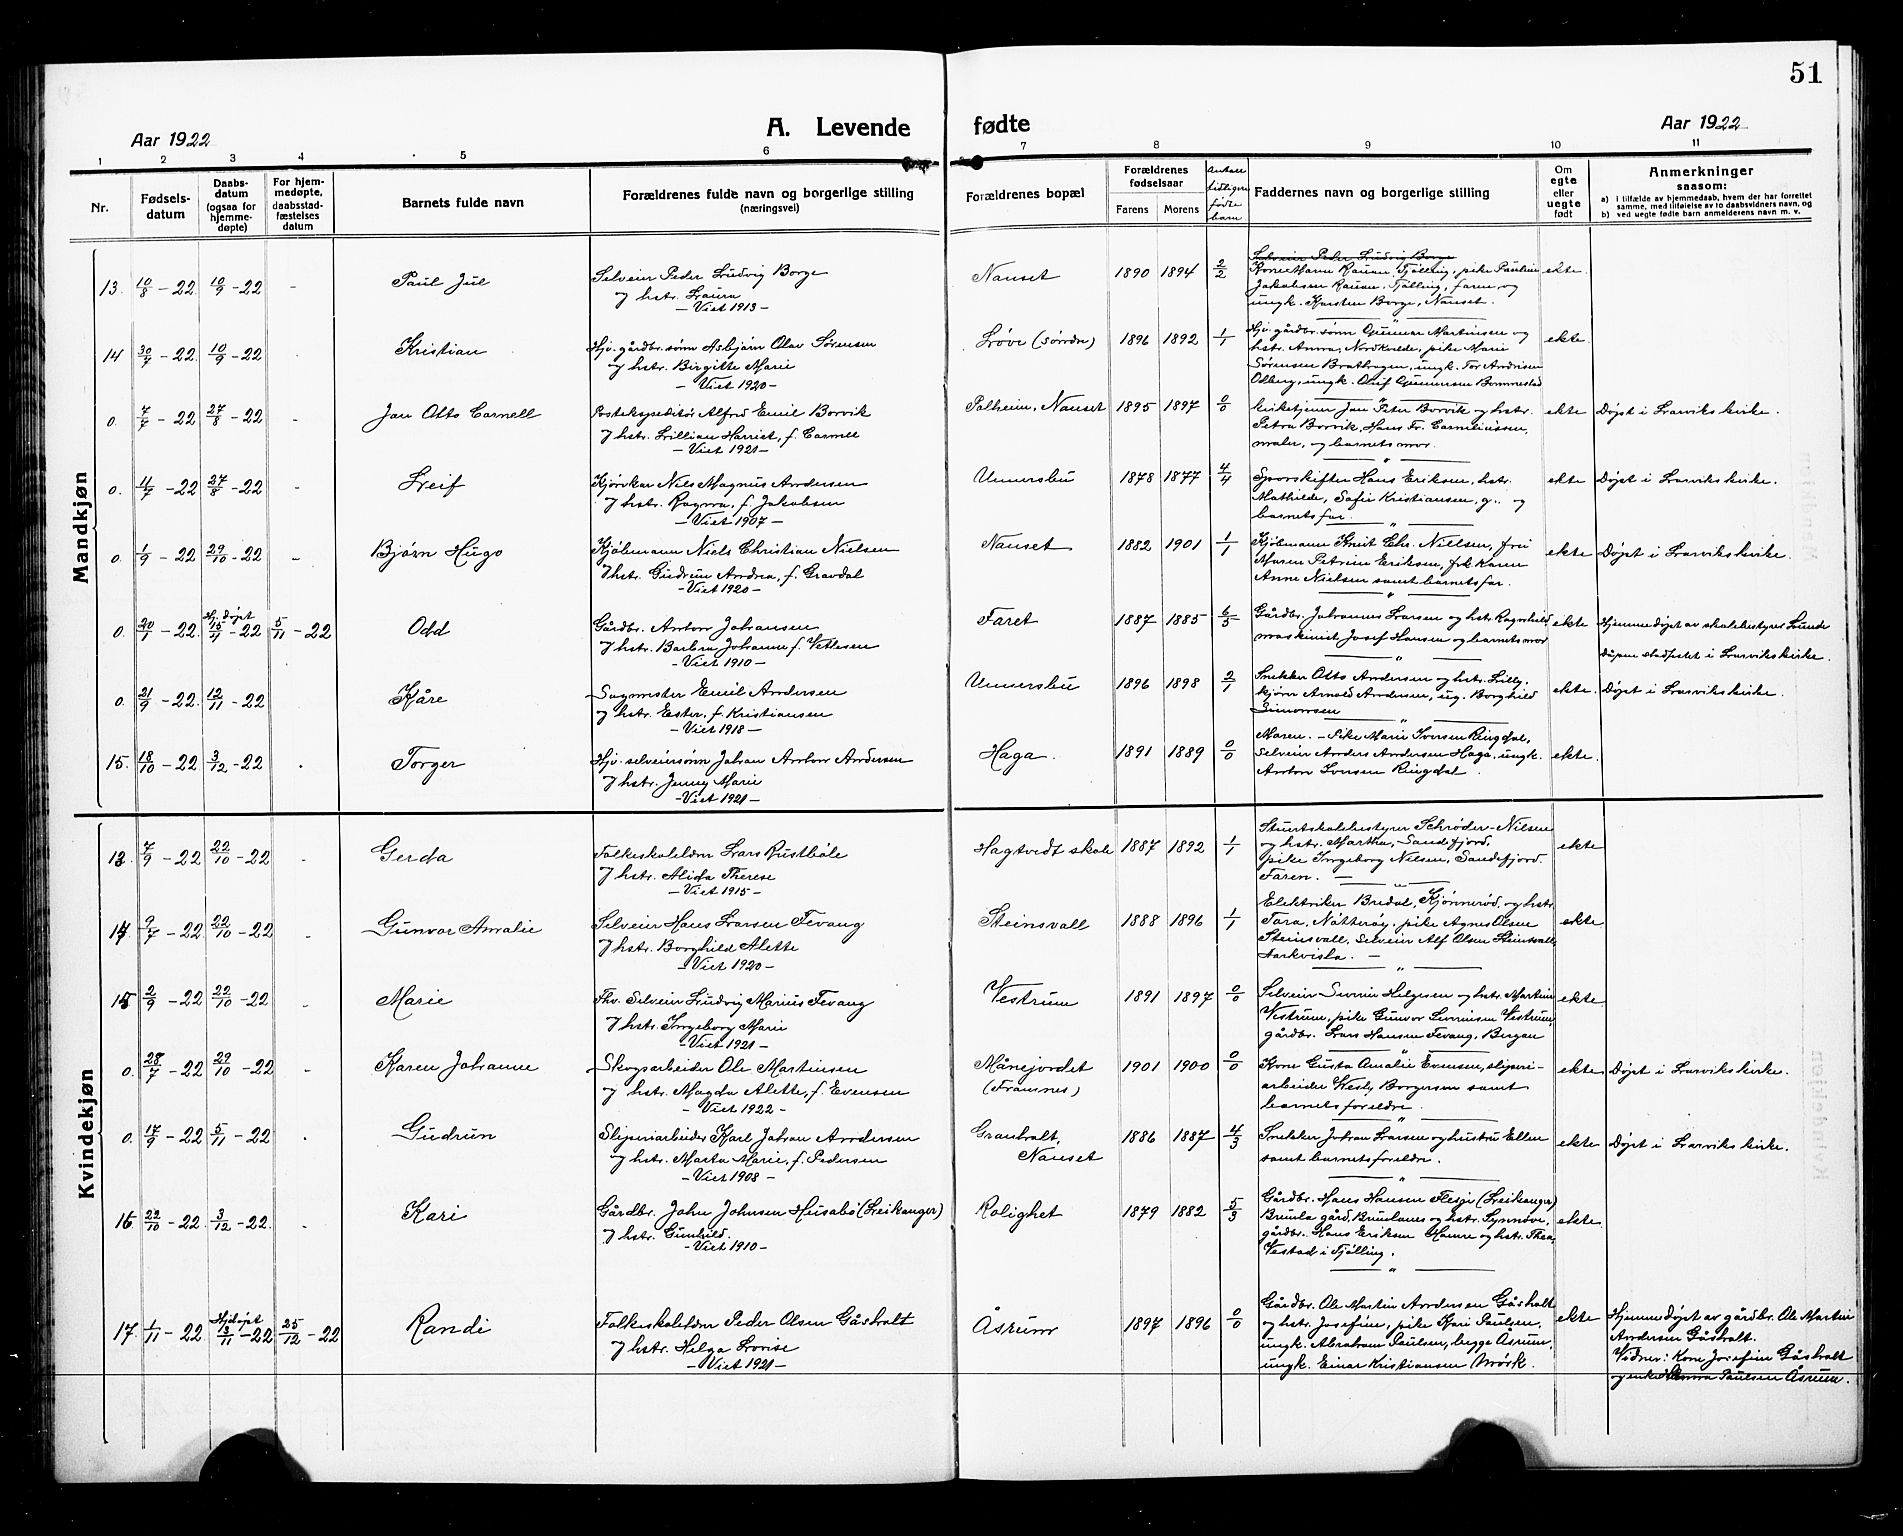 51
Aar 1922
A. Levende fødte
Aar 1922
1 2 3 4 5 6 7 8 9 10 11
Nr.
Fødsels-
datum
Daabs-
datum
(ogsaa for
hjemme-
døpte)
For hjem-
medøpte,
daabsstad-
fæstelses
datum
Barnets fulde navn
Forældrenes fulde navn og borgerlige stilling
(næringsvei)
Forældrenes bopæl
Forældrenes
fødselsaar
Farens
Morens
Antal
tidligere
fødte
barn
Faddernes navn og borgerlige stilling
Om
egte
eller
uegte
født
Anmerkninger
saasom:
a) i tilfælde av hjemmedaab, hvem der har forrettet
samme, med tilføielse av to daabsvidners navn, og
b) ved uegte fødte barn anmelderens navn m. v.
Mandkjøn
13. 10/8 - 22 10/9 - 22 - Paul Jul
Selveier Peder Ludvig Borge
og hstr. Laura
- Viet 1913 -
Nanset 1890 1894 2/2
Selveier Peder Ludvig Borge
Kone Maria Rauan, Tjølling, pike Pauline
Jakobsen Rauan, Tjølling, faren og
ungk. Karsten Borge, Nanset.
ekte.
14 30/7 - 22 10/9 - 22 Kristian
Hjv. gårdbr. sønn Asbjørn Olav Sørensen
og hstr. Birgitte Marie
- Viet 1920 -
Løve (søndre) 1896 1892 1/1
Hjv. gårdbr. sønn Gunnar Martinsen og
hstr. Anna, Nordkvelde, pike Marie
Sørensen Brathagen, ungk. Tor Andersen
Odberg, ungk. Oluf Gunnersen Bommestad
ekte.
0. 7/7 - 22 27/8 - 22 - Jan Otto Carnell
Postekspeditør Alfred Emil Borvik
og hstr. Lillian Harriet, f. Carnell
- Viet 1921 -
Solheim, Nanset 1895 1897 0/0
Kirketjener Jan Peter Borvik og hstr.
Petra Borvik, Hans Fr. Corneliussen,
maler, og barnets mor.
ekte Døpt i Larviks kirke.
0. 4/7 - 22 27/8 - 22 - Leif
Kjørekar Nils Magnus Andersen
og hstr. Ragna, f. Jakobsen
- Viet 1907 -
Unnersbu 1878 1877 4/4
Sporskifter Hans Eriksen, hstr.
Mathilde, Sofie Kristiansen, g. og
barnets far.
ekte Døpt i Larviks kirke.
0. 1/9 - 22 29/10 - 22 - Bjørn Hugo
Kjøbmann Niels Christian Nielsen
og hstr. Gudrun Andrea, f. Gravdal
- Viet 1920 -
Nanset 1882 1901 1/1
Kjøbmann Knut Chr. Nielsen, fru
Maren Petrine Eriksen, frk Karen
Anne Nielsen samt barnets far.
ekte Døpt i Larviks kirke.
0. 20/1 - 22 Hj. døpt 15/11 - 22 5/11 - 22 Odd
Gårdbr. Anton Johansen
og hstr. Barbra Johanne f. Vetlesen
- Viet 1910 -
Faret 1887 1885 6/5
Gårdbr. Johannes Larsen og hstr. Ragnhild
maskinist Josef Hansen og barnets mor
ekte Hjemmedøpt av skolebestyrer Lunde
Dåpen stadfestet i Larviks kirke.
0. 21/9 - 22 12/11 - 22 - Kåre
Sagmester Emil Andersen
og hstr. Ester, f. Kristiansen
- Viet 1918 -
Unnersbu 1896 1898 2/1
Snekker Otto Andersen og hstr. Lilly,
kjørn Arnold Andersen, ug. Borghild
Simonsen
ekte. Døpt i Larviks kirke.
15. 18/10 - 22 3/12 - 22 Torger
Hjv. selveiersønn Johan Anton Andersen
og hstr. Jenny Marie
- Viet 1921 -
Haga. 1891 1889 0/0
Moren. - Pike Marie Iversen Ringdal,
selveier Anders Andersen Haga, ungk.
Anton Iversen Ringdal.
ekte.
Kvindekjøn
13. 7/9 - 22 22/10 - 22 Gerda
Folkeskolelærer Lars Rustbøle
og hstr. Alida Therese
- Viet 1915 -
Hagtvedt skole 1887 1892 1/1
Stuertskolebestyrer Schrøder-Nielsen
og hstr. Martha, Sandefjord,
pike Ingeborg Nilsen, Sandefjord.
Faren. -
ekte
14 9/7 - 22 22/10 - 22 Gunvor Amalie
Selveier Hans Larsen Fevang
og hstr. Borghild Alette
- Viet 1920 -
Steinsvall 1888 1896 1/1
Elektriker Bredal, Kjønnerød, og hstr.
Tara, Nøtterøy, pike Agnes Olsen
Steinsvall, selveier Alf Olsen Steinsvall,
ekte
15 2/9 - 22 22/10 - 22 Marie
Fhv. Selveier Ludvig Marius Fevang
og hstr. Ingeborg Marie
- Viet 1921 -
Vestrum 1891 1897 0/0
Selveier Severin Helgesen og hstr. Martine
Vestrum, pike Gunvor Severinsen Vestrum,
gårdbr. Lars Hansen Fevang, Bergan
ekte
0. 28/7 - 22 29/10 - 22 Karen Johanne
Skogsarbeider Ole Martinsen
og hstr. Magda Alette, f. Evensen
- Viet 1922 -
Månejordet
(Framnes) 1901 1900 0/0
Kone Gusta Amalie Evensen, sliperi-
arbeider Wesly Borgersen samt
barnets foreldre.
ekte Døpt i Larviks kirke.
0. 17/9 - 22 5/11 - 22 Gudrun
Sliperiarbeider Karl Johan Andersen
og hstr. Marta Marie, f. Pedersen
- Viet 1908 -
Granholt,
Nanset 1886 1887 4/3
Snekker Johan Larsen og hustru Ellen
samt barnets foreldre.
ekte Døpt i Larviks kirke.
16 22/10 - 22 3/12 - 22. Kari
Gårdbr. John Johnsen Husabø (Leikanger)
og hstr. Gunhild.
- Viet 1910 -
Rolighet 1879 1882 5/3
Gårdbr. Hans Hansen Flesje (Leikanger)
Brunla gård, Brunlanes og hstr. Synnøve,
gårdbr. Hans Eriksen Hamre og hstr. Thea,
Vestad i Tjølling.
ekte.
17. 1/11 - 22 Hjdøpt 13/11 - 22 25/12 - 22 Randi
Folkeskolelærer Peder Olsen Gåsholt
og hstr. Helga Lovise
- Viet 1921 -
Åsrum 1897 1896 0/0
Gårdbr. Ole Martin Andersen Gåsholt
og hstr. Josefine, pike Kari Paulsen,
ungk. Abraham Paulsen, begge Åsrum,
ungk. Einar Kristiansen Mørk.
ekte Hjemmedøpt av gårdbr. Ole Martin
Andersen Gåsholt.
Vidner: Kone Josefine Gåsholt
og enke Anna Paulsen Åsrum.